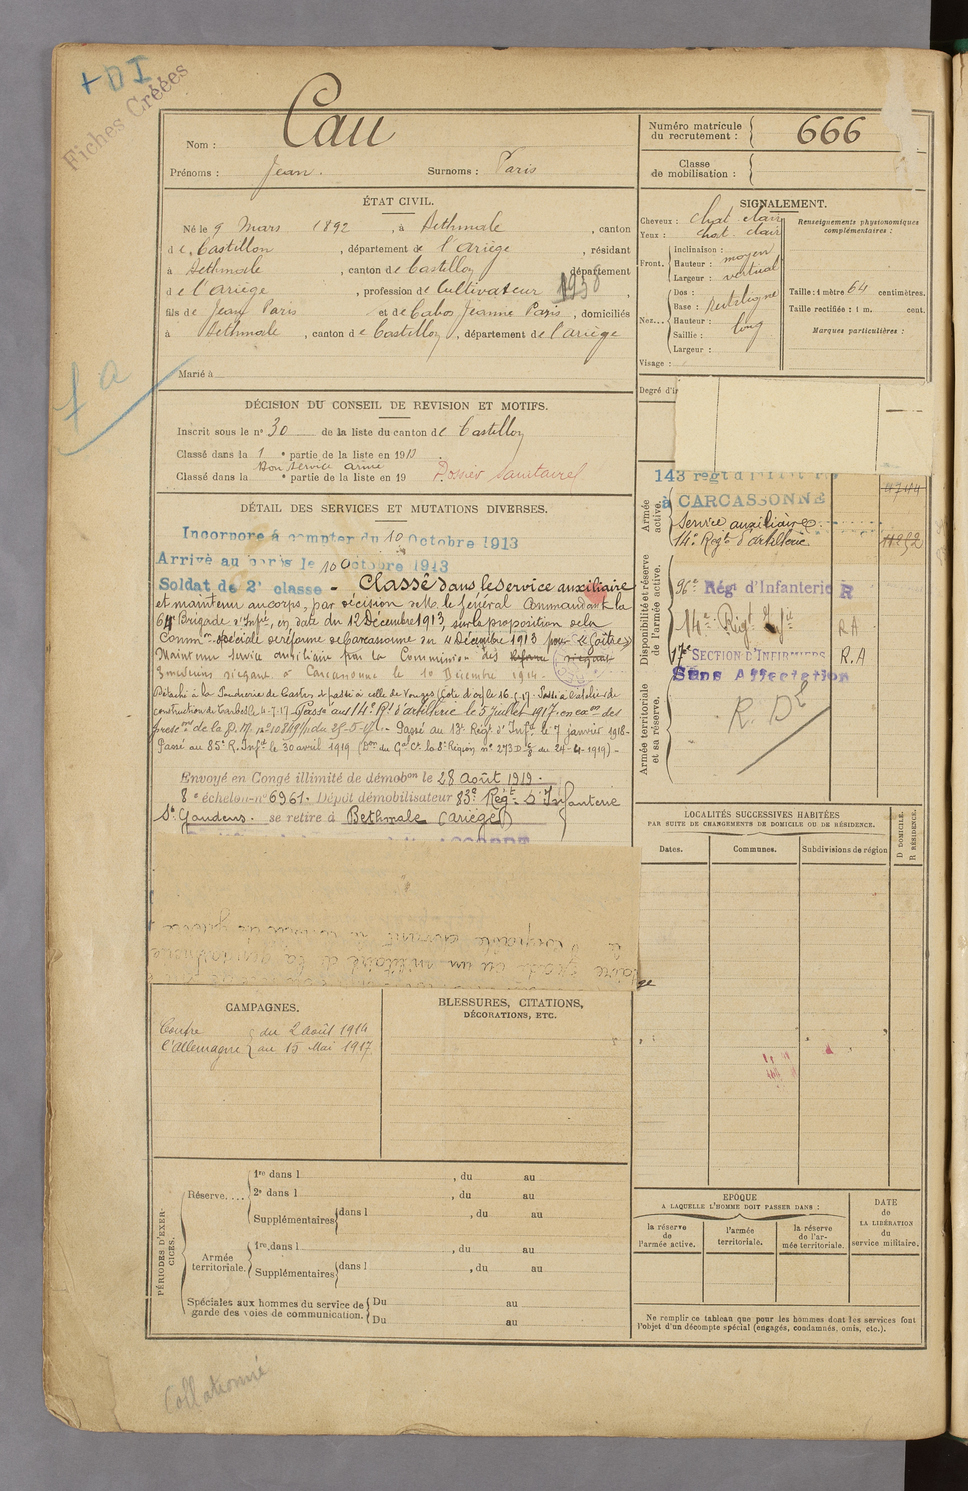 + D I
Fiches Créées
Nom : Cau
Prénoms : Jean. Surnoms : Paris
Numéro matricule du recrutement : 666
Classe de mobilisation :
ÉTAT CIVIL.
Né le 9 Mars 1892, à Bethmale, canton
de Castillon, département de l'Ariège, résidant
à Bethmale, canton de Castillon, département
de l'Ariège, profession de Cultivateur
fils de Jean Paris et de Cabos Jeanne Paris, domiciliés
à Bethmale, canton de Castillon, département de l'Ariège
Marié à
SIGNALEMENT.
Cheveux : chat clair
Yeux : chat. clair
Front. Inclinaison :
Hauteur : moyen
Largeur : vertical
Nez... Dos : rectiligne
Base :
Hauteur : long
Saillie :
Largeur :
Visage :
Renseignements physionomiques complémentaires :
Taille : 1 mètre 64 centimètres.
Taille rectifiée : 1 m. cent.
Marques particulières :
7 a
DÉCISION DU CONSEIL DE REVISION ET MOTIFS.
Inscrit sous le n° 30 de la liste du canton de Castillon
Classé dans la 1 e partie de la liste en 1913
Bon service armé
Classé dans la e partie de la liste en 19 Dossier sanitaire
DÉTAIL DES SERVICES ET MUTATIONS DIVERSES.
Incorporé à compter du 10 Octobre 1913
Arrivé au corps le 10 Octobre 1913
Soldat de 2e classe - Classé dans le service auxiliaire
et maintenu au corps, par décision de M. le Général Commandant la
64e Brigade d'Infie, en date du 12 Décembre 1913, sur la proposition de la
Common spéciale de réforme de Carcassonne du 4 Décembre 1913 pour "Goître"
Maintenu service auxiliaire par la Commission des Réforme (siégeant
3 médecins siégeant à Carcassonne le 10 Décembre 1914.
Détaché à la Poudrerie de Castres et passé à celle de Vonges (Côte d'or) le 16.5.17. Passé à l'atelier de
construction de Tarbes le 4.7.17. Passé au 14e Rt d'artillerie le 5 juillet 1917. en exon des
prescons de la D. M. n° du 25-5-17. Passé au 18e Regt d'Inft le 7 janvier 1918-
Passé au 85e R. Inft le 30 avril 1919 (Don du Gal Ct la 8e Région n° 273 D du 24-4-1919) -
Envoyé en Congé illimité de démobon le 28 Août 1919.
8e échelon-n° 6961. Dépôt démobilisateur 83e Régt d'Infanterie
St Gaudens. se retire à Bethmale (Ariège)
Degré d'i
Armée active.
143 regt d'
à CARCASSONNE
Service auxiliaire
14e Regt d'artillerie
Disponibilité et réserve de l'armée active.
96e Régt d'Infanterie R
14e Regt RA
17e SECTION D'INFIRMIERS R.A
Sans Affectation
Armée territoriale et sa réserve.
LOCALITÉS SUCCESSIVES HABITÉES
PAR SUITE DE CHANGEMENTS DE DOMICILE OU DE RÉSIDENCE.
Dates. Communes. Subdivisions de région D DOMICILE. R RÉSIDENCE.
CAMPAGNES.
Contre l'Allemagne du 2 Août 1914
au 15 Mai 1917
BLESSURES, CITATIONS,
DÉCORATIONS, ETC.
PÉRIODES D'EXERCICES.
Réserve.... 1re dans l , du au
2e dans l , du au
Supplémentaires dans l , du au
Armée territoriale. 1re dans l , du au
Supplémentaires dans l , du au
Spéciales aux hommes du service de garde des voies de communication. Du au
Du au
ÉPOQUE
A LAQUELLE L'HOMME DOIT PASSER DANS :
la réserve de l'armée active.
l'armée territoriale.
la réserve de l'armée territoriale.
DATE de LA LIBÉRATION du service militaire.
Ne remplir ce tableau que pour les hommes dont les services font
l'objet d'un décompte spécial (engagés, condamnés, omis, etc.).
Collationné